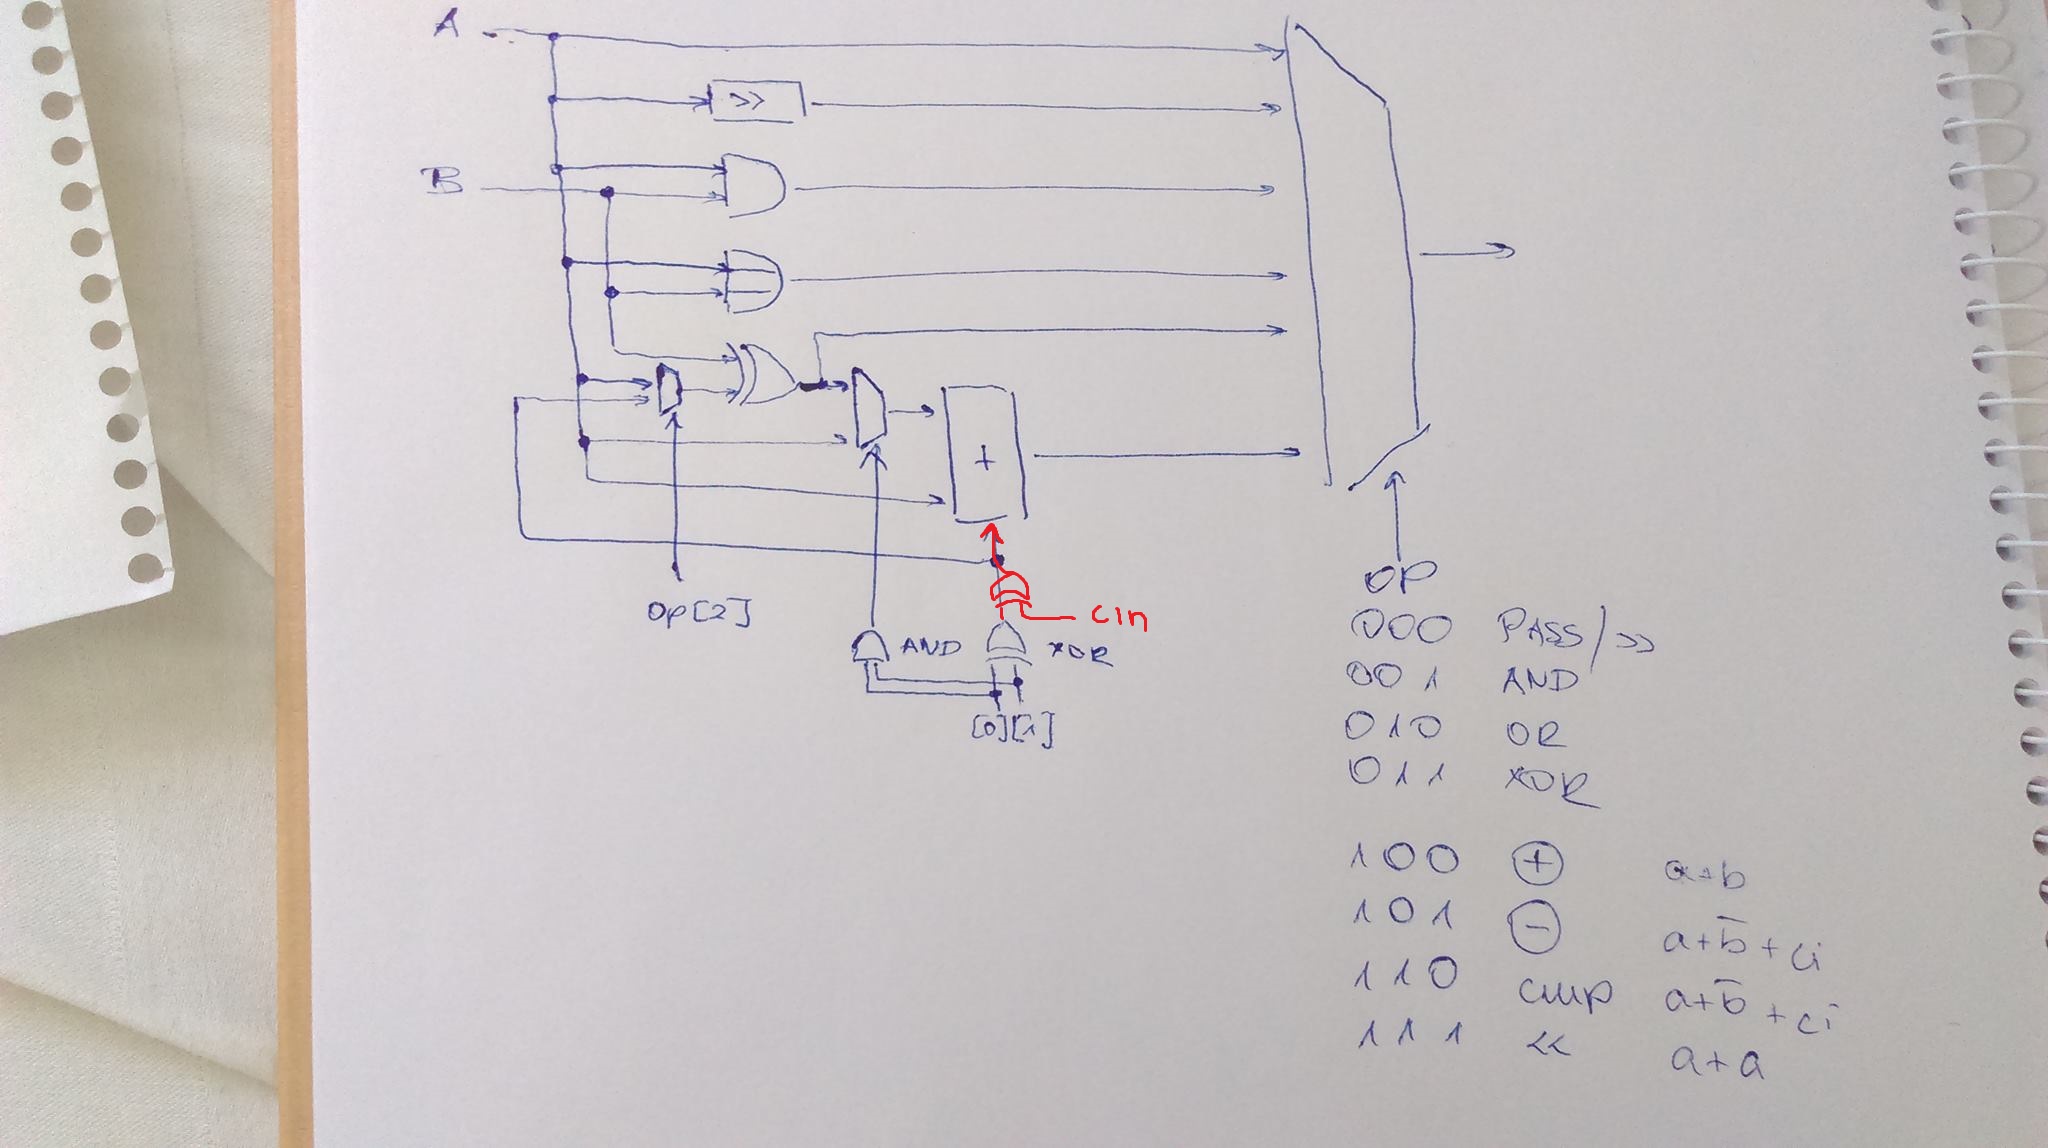 A
>>
B
+
Op[2]
cin
AND
XOR
[0][1]
OP
000 PASS/>>
001 AND
010 OR
011 XOR
100 ⊕ a+b
101 ⊖ a+b̅+ci
110 cmp a+b̅+ci
111 << a+a